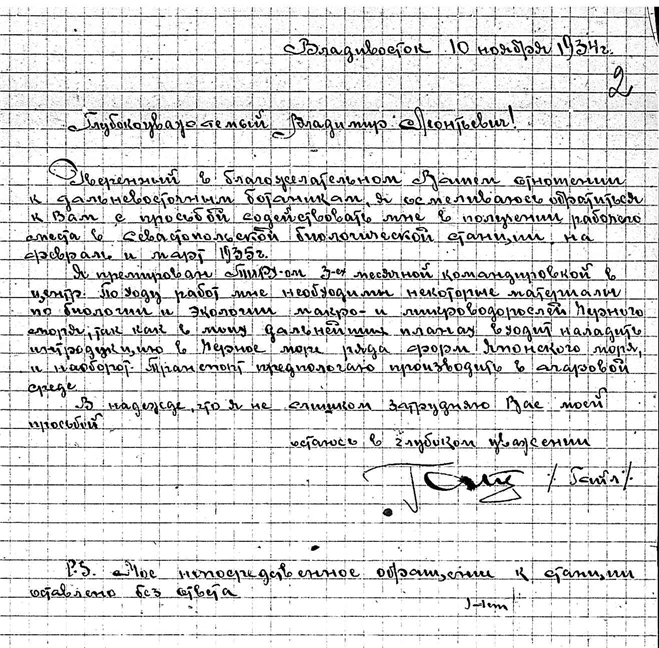 Владивосток 10 ноября 1934г.
2
Глубокоуважаемый Владимир Леонтьевич!
Уверенный в благожелательном Вашем отношении
к дальневосточным ботаникам, я осмеливаюсь обратиться
к Вам с просьбой содействовать мне в получении рабочего
места в Севастопольской биологической станции, на
февраль и март 1935г.
Я премирован ТИРХ-ом 3-ех месячной командировкой в
центр. По ходу работ мне необходимы некоторые материалы
по биологии и экологии макро- и микроводорослей Черного
моря, так как в моих дальнейших планах входит наладить
интродукцию в Черное море ряда форм Японского моря,
и наоборот. Транспорт предпологаю производить в агаровой
среде
В надежде, что я не слишком затрудняю Вас моей
просьбой
остаюсь в глубоком уважении
/Гайл/
P.S. Мое непосредственное обращение к станции
оставлено без ответа